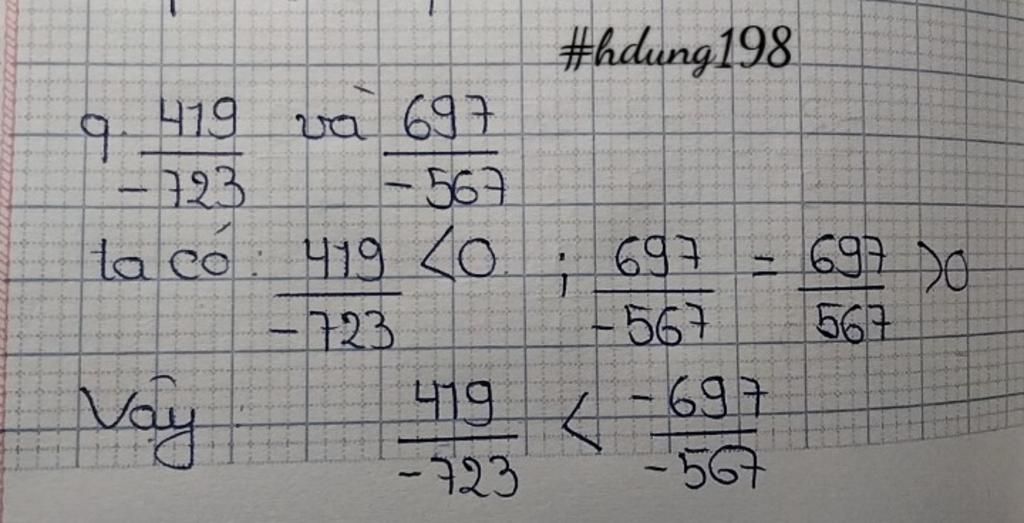 #hdung198
q. 419/-723 và 697/-567
ta có: 419/-723 <0 ; 697/-567 = 697/567 >0
Vậy 419/-723 < -697/-567